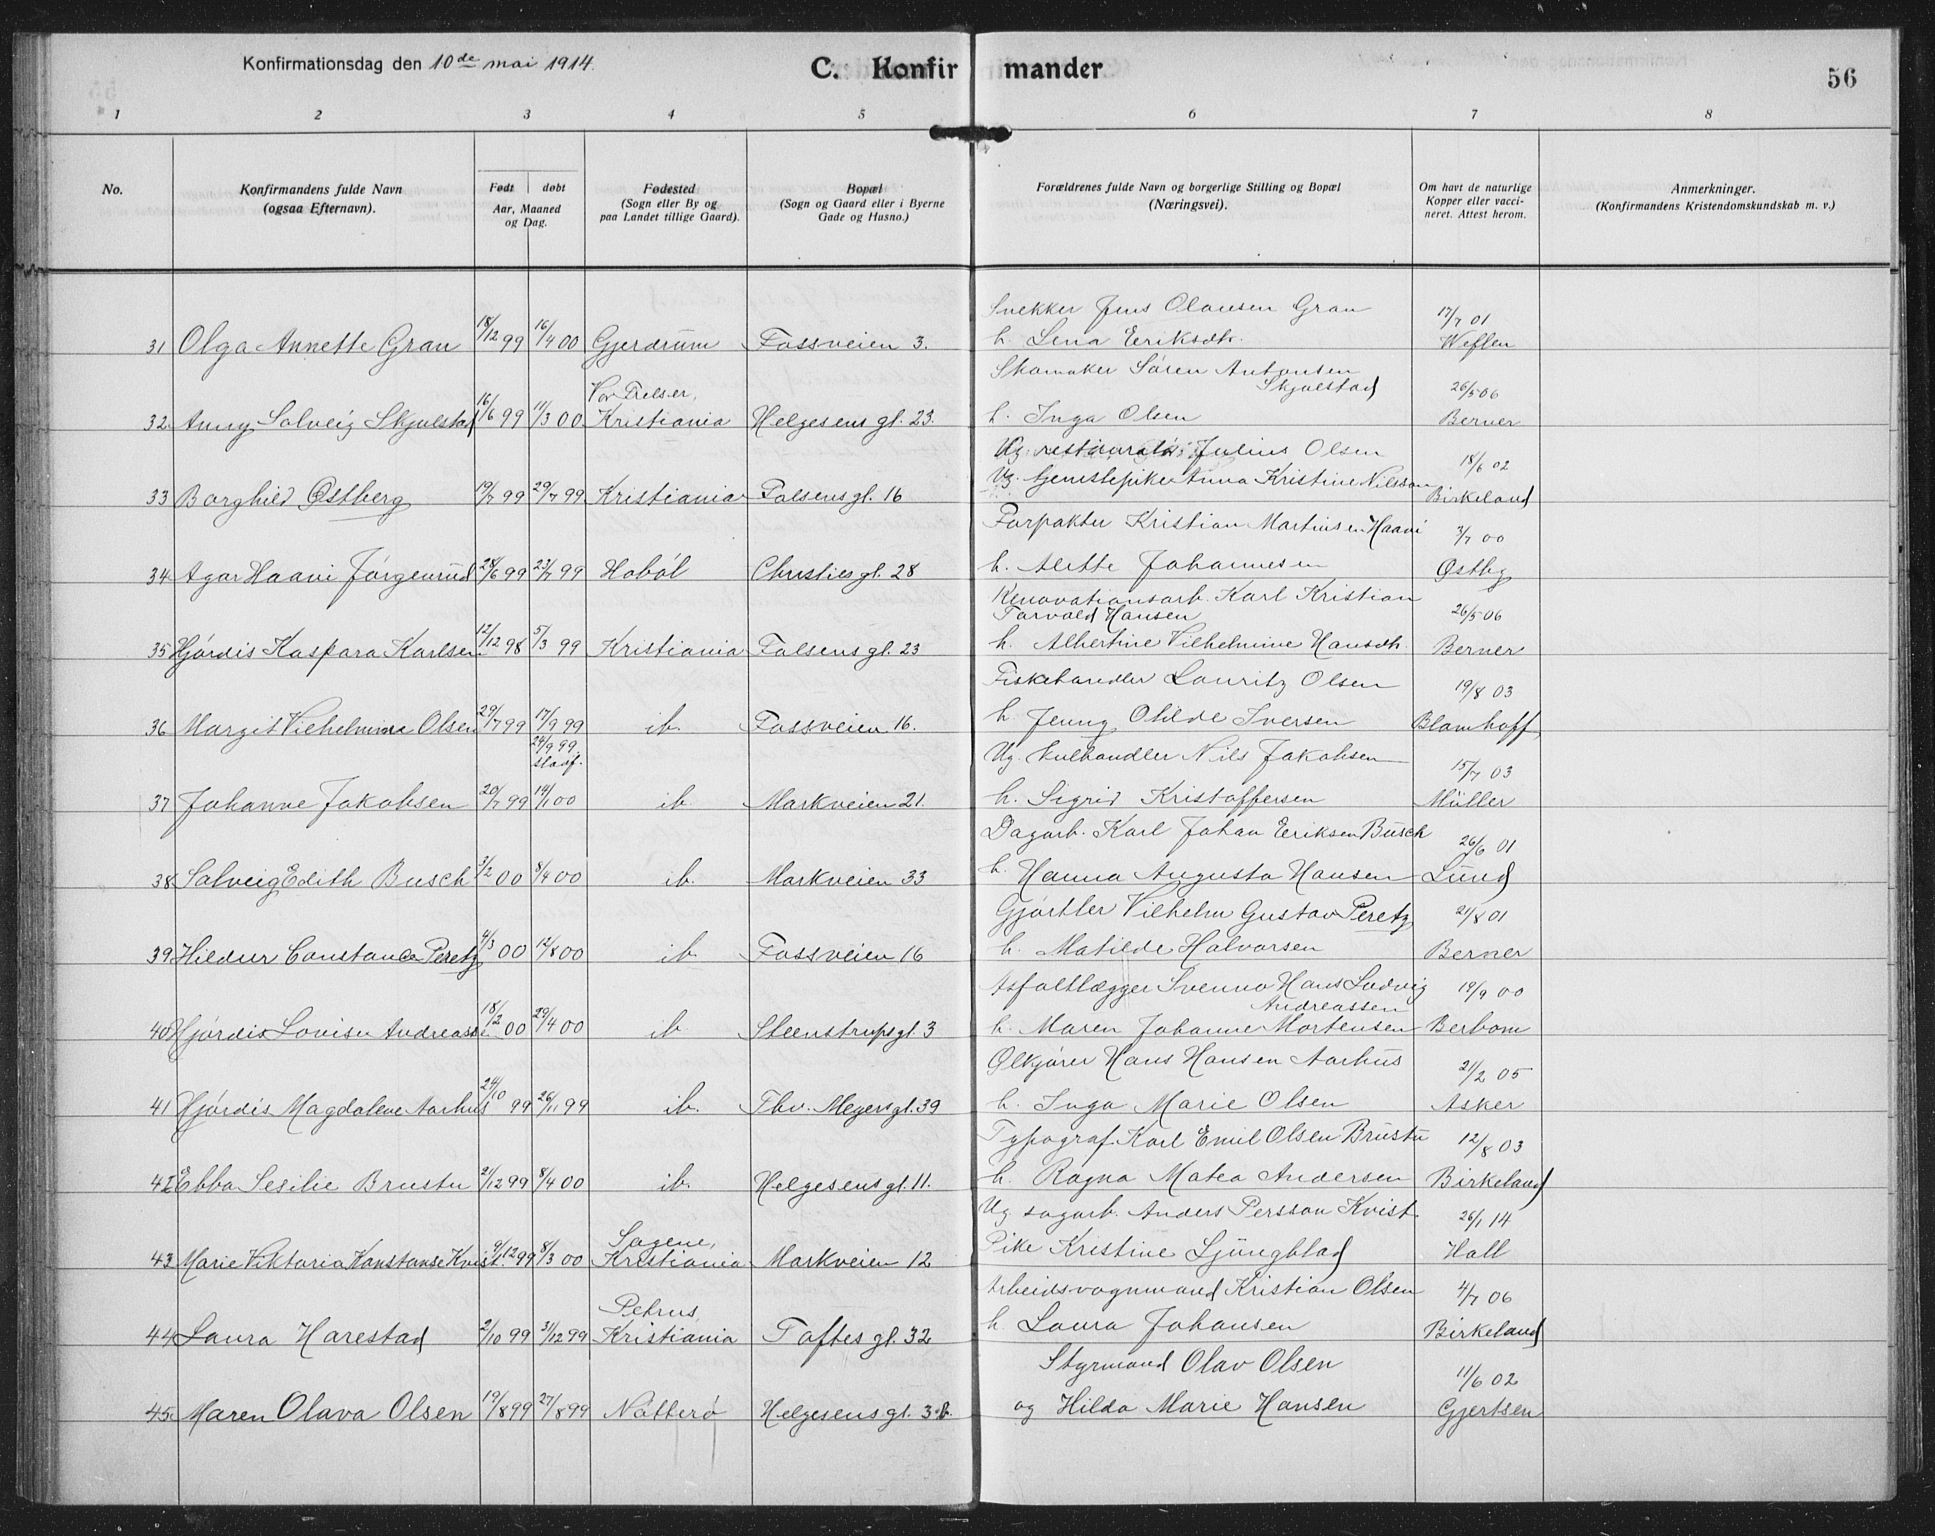 Konfirmationsdag den 10de mai 1914.
C. Konfirmander
56
1 2 3 4 5 6 7 8
No.
Konfirmandens fulde Navn (ogsaa Efternavn).
Født | døbt
Aar, Maaned og Dag.
Fødested (Sogn eller By og paa Landet tillige Gaard).
Bopæl (Sogn og Gaard eller i Byerne Gade og Husno.)
Forældrenes fulde Navn og borgerlige Stilling og Bopæl (Næringsvei).
Om havt de naturlige Kopper eller vaccineret. Attest herom.
Anmerkninger. (Konfirmandens Kristendomskundskab m. v.)
Snekker Jens Olausen Gran 17/7 01
31 Olga Annette Gran 18/12 99 16/4 00 Gjerdrum Fossveien 3. h. Lena Eriksdtr. Weflen
Skomaker Søren Antonsen
Vor Frelser, Skjulstad 26/5 06
32 Anny Solveig Skjulstad 16/6 99 11/3 00 Kristiania Helgesens gl. 23. h. Inga Olsen Berner
Ug. restauratør Julius Olsen 18/6 02
33 Borghild Østberg 19/7 99 29/7 99 Kristiania Falsens gl. 16 Ug. tjenestepike Anna Kristine Nilsson Birkeland
Forpakter Kristian Martinsen Haavi 3/7 00
34 Agar Haavi Jørgenrud 28/6 99 23/7 99 Hobøl Christies gl. 28 h. Alette Johannesen Østby
Renovationsarb. Karl Kristian
Torvald Hansen 26/5 06
35 Hjørdis Kaspara Karlsen 12/12 98 5/3 99 Kristiania Falsens gl. 23 h. Albertine Vilhelmine Hansdtr. Berner
Fiskehandler Lauritz Olsen 19/8 03
36 Margit Vilhelmine Olsen 29/7 99 17/9 99 ib. Fossveien 16. h. Jenny Otilde Iversen Blomhoff
24/9 99. stadf.
Ug. Kulhandler Nils Jakobsen 15/7 03
37 Johanne Jakobsen 20/7 99 14/1 00 ib. Markveien 21. h. Sigrid Kristoffersen Müller
Dagarb. Karl Johan Eriksen Busch 26/6 01
38 Solveig Edith Busch 3/2 00 8/4 00 ib. Markveien 33 h. Hanna Augusta Hansen Lund
Gjørtler Vilhelm Gustav Peretz 21/8 01
39 Hildur Constance Peretz 4/3 00 12/8 00 ib. Fossveien 16 h. Matilde Halvorsen Berner
Asfaltlægger Svenno Hans Ludvig 19/9 00
Andreassen
40 Hjørdis Lovise Andreassen 18/2 00 29/4 00 ib. Steenstrups gl. 3 h. Maren Johanne Mortensen Berbom
Ølkjører Hans Hansen Aarhus 21/2 05
41 Hjørdis Magdalene Aarhus 24/10 99 26/11 99 ib. Thv. Meyers gl. 39 h. Inga Marie Olsen Asker
Typograf Karl Emil Olsen Brustu 12/8 03
42 Ebba Sesilie Brustu 21/12 99 8/4 00 ib. Helgesens gl. 11. h. Ragna Matea Andersen Birkeland
Ug. sagarb. Anders Persson Kvist 26/1 14
Sagene,
43 Marie Viktoria Konstanse Kvist 9/12 99 8/3 00 Kristiania Markveien 12 Pike Kristine Ljüngblad Hall
Arbeidsvognmand Kristian Olsen 4/7 06
Petrus,
44 Laura Harestad 2/10 99 31/12 99 Kristiania Toftes gl. 32 h. Laura Johansen Birkeland
Styrmand Olav Olsen 11/6 02
45. Maren Olava Olsen 19/8 99 27/8 99 Nøtterø Helgesens gl. 3 b. og Hilda Marie Hansen Gjertsen